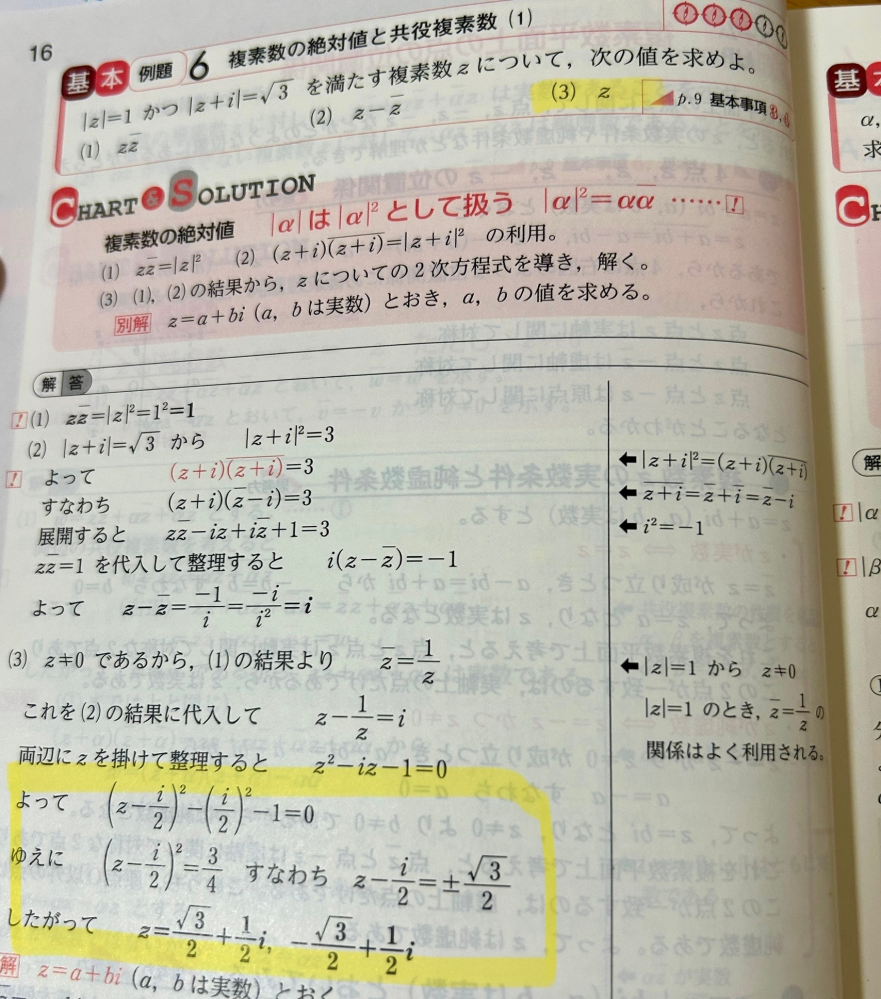 16
基本 例題 6 複素数の絶対値と共役複素数 (1)
|z|=1 かつ |z+i|=√3 を満たす複素数 z について，次の値を求めよ。
(1) zz̅ (2) z−z̅ (3) z
p.9 基本事項
CHART & SOLUTION
複素数の絶対値 |α| は |α|² として扱う |α|²=αα̅ ……!
(1) zz̅=|z|² (2) (z+i)(z+i)̅=|z+i|² の利用。
(3) (1), (2)の結果から，z についての 2 次方程式を導き，解く。
別解 z=a+bi (a, b は実数) とおき，a, b の値を求める。
解答
! (1) zz̅=|z|²=1²=1
(2) |z+i|=√3 から |z+i|²=3
! よって (z+i)(z+i)̅=3
←|z+i|²=(z+i)(z+i)̅
すなわち (z+i)(z̅−i)=3
←z+i̅=z̅+i̅=z̅−i
展開すると zz̅−iz+iz̅+1=3
←i²=−1
zz̅=1 を代入して整理すると i(z−z̅)=−1
よって z−z̅=−1/i=−i/i²=i
(3) z≠0 であるから，(1)の結果より z̅=1/z
←|z|=1 から z≠0
これを(2)の結果に代入して z−1/z=i
|z|=1 のとき，z̅=1/z の
両辺に z を掛けて整理すると z²−iz−1=0
関係はよく利用される。
よって (z−i/2)²−(i/2)²−1=0
ゆえに (z−i/2)²=3/4 すなわち z−i/2=±√3/2
したがって z=√3/2+1/2i, −√3/2+1/2i
解 z=a+bi (a, b は実数) とおく
基
α,
求
CH
解
! |α
! |β
α